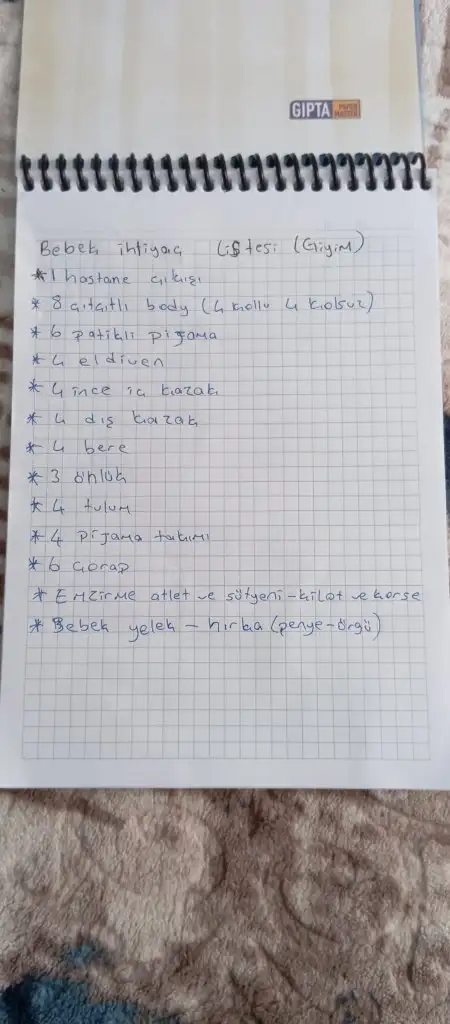 GIPTA PAPER MATTER
Bebek ihtiyaç Listesi (Giyim)
* 1 hastane çıkışı
* 8 çıtçıtlı body (4 kollu 4 kolsuz)
* 6 patikli pijama
* 4 eldiven
* 4 ince iç kazak
* 4 dış kazak
* 4 bere
* 3 önlük
* 4 tulum
* 4 pijama takımı
* 6 çorap
* Emzirme atlet ve sütyeni - kilot ve korse
* Bebek yelek - hırka (penye-örgü)